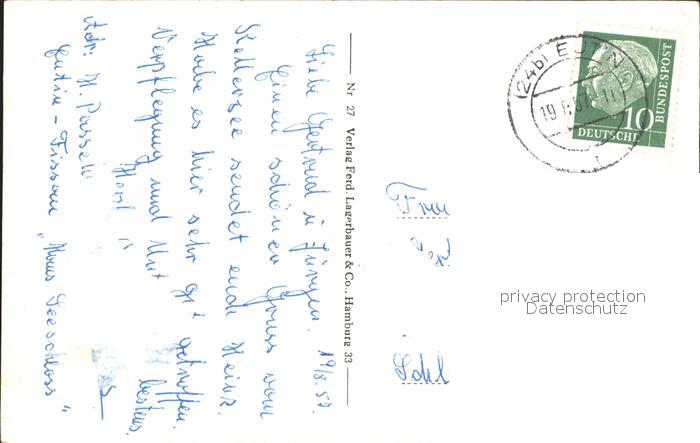 Liebe Gertrud u Jürgen. 19/8.57.
Einen schönen Gruss vom
Kellersee sendet euch Heinz.
Habe es hier sehr gut getroffen.
Verpflegung und bestens.
Adr. H.
Eutin - Fissau "Haus Seeschloss"
Nr 27 Verlag Ferd. Lagerbauer & Co., Hamburg 33
(24b) EUTIN
19
10
DEUTSCHE
BUNDESPOST
Frau
privacy protection
Datenschutz